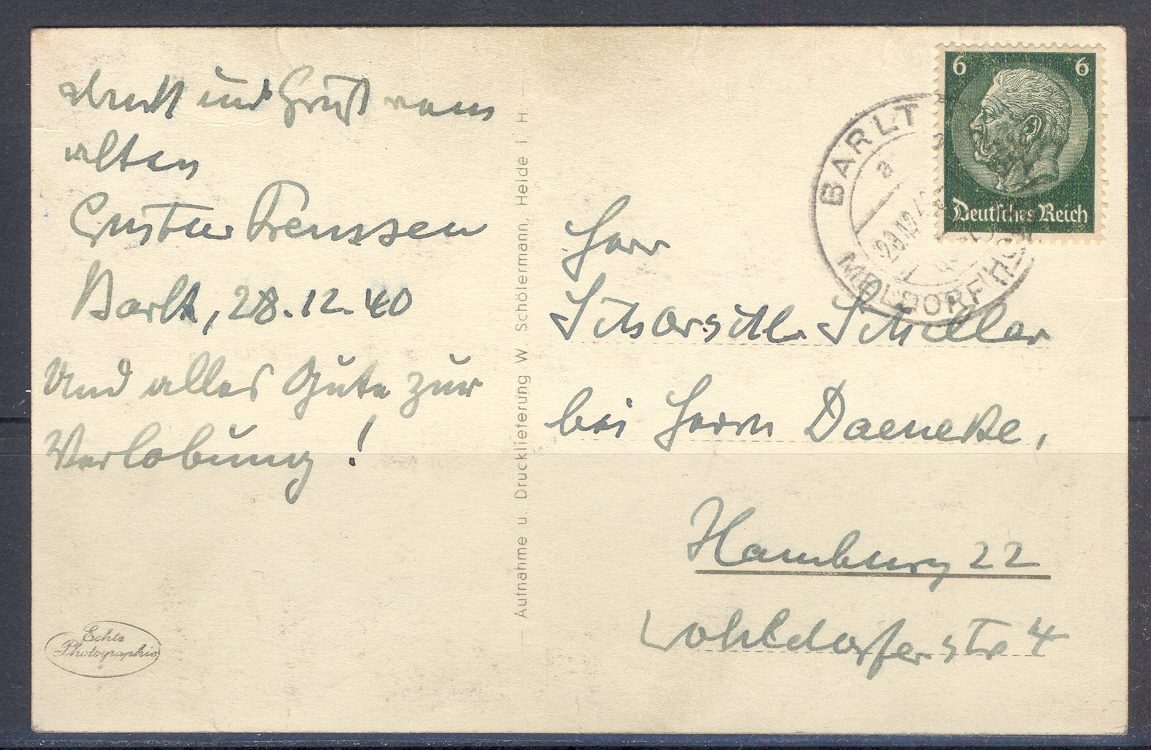 Dank und Gruß vom
alten
Gustav Frenssen
Barlt, 28.12.40
Und alles Gute zur
Verlobung!
Echte
Photographie
Aufnahme u. Drucklieferung W. Schölermann, Heide i H
BARLT
a
MELDORF (HO
6 6
Deutsches Reich
Herr
Schiller
bei Herrn Daeneke,
Hamburg 22
Wohldorferstr 4